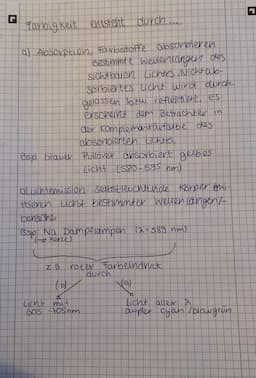 Farbigkeit entsteht durch...
a) Absorption, Farbstoffe absorbieren
bestimmte Wellenlängen des
sichtbaren Lichtes. Nichtab-
sorbiertes Licht wird durch-
gelassen bzw. reflektiert. Es
erscheint dem Betrachter in
der Komplementärfarbe des
absorbierten Lichtes.
Bsp. blauer Pullover absorbiert gelbes
Licht (580-595 nm)
b) Lichtemission Selbstleuchtende Körper emi-
ttieren Licht bestimmter Wellenlängen/-
bereiche
Bsp. Na Dampflampen (λ=589 nm)
(→ Kerze)
z.B. roter Farbeindruck
durch
(b) (a)
Licht mit Licht aller λ
605 -705nm außer cyan /blaugrün